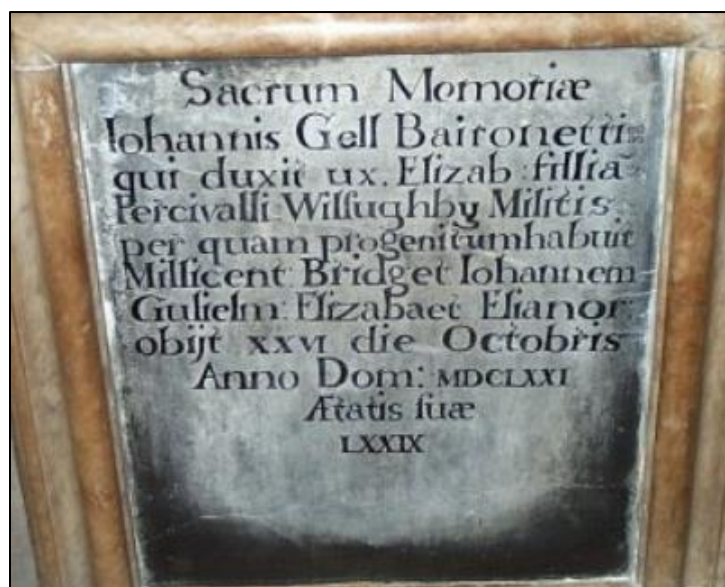 Sacrum Memoriæ
Iohannis Gell Baironetti
qui duxit ux. Elizab: fillia~
Percivalli Willughby Militis
per quam progenitumhabuit
Millicent Bridget Iohannem
Gulielm: Elizabaet Elianor:
obijt XXVI die Octobris
Anno Dom: MDCLXXI
Ætatis suæ
LXXIX